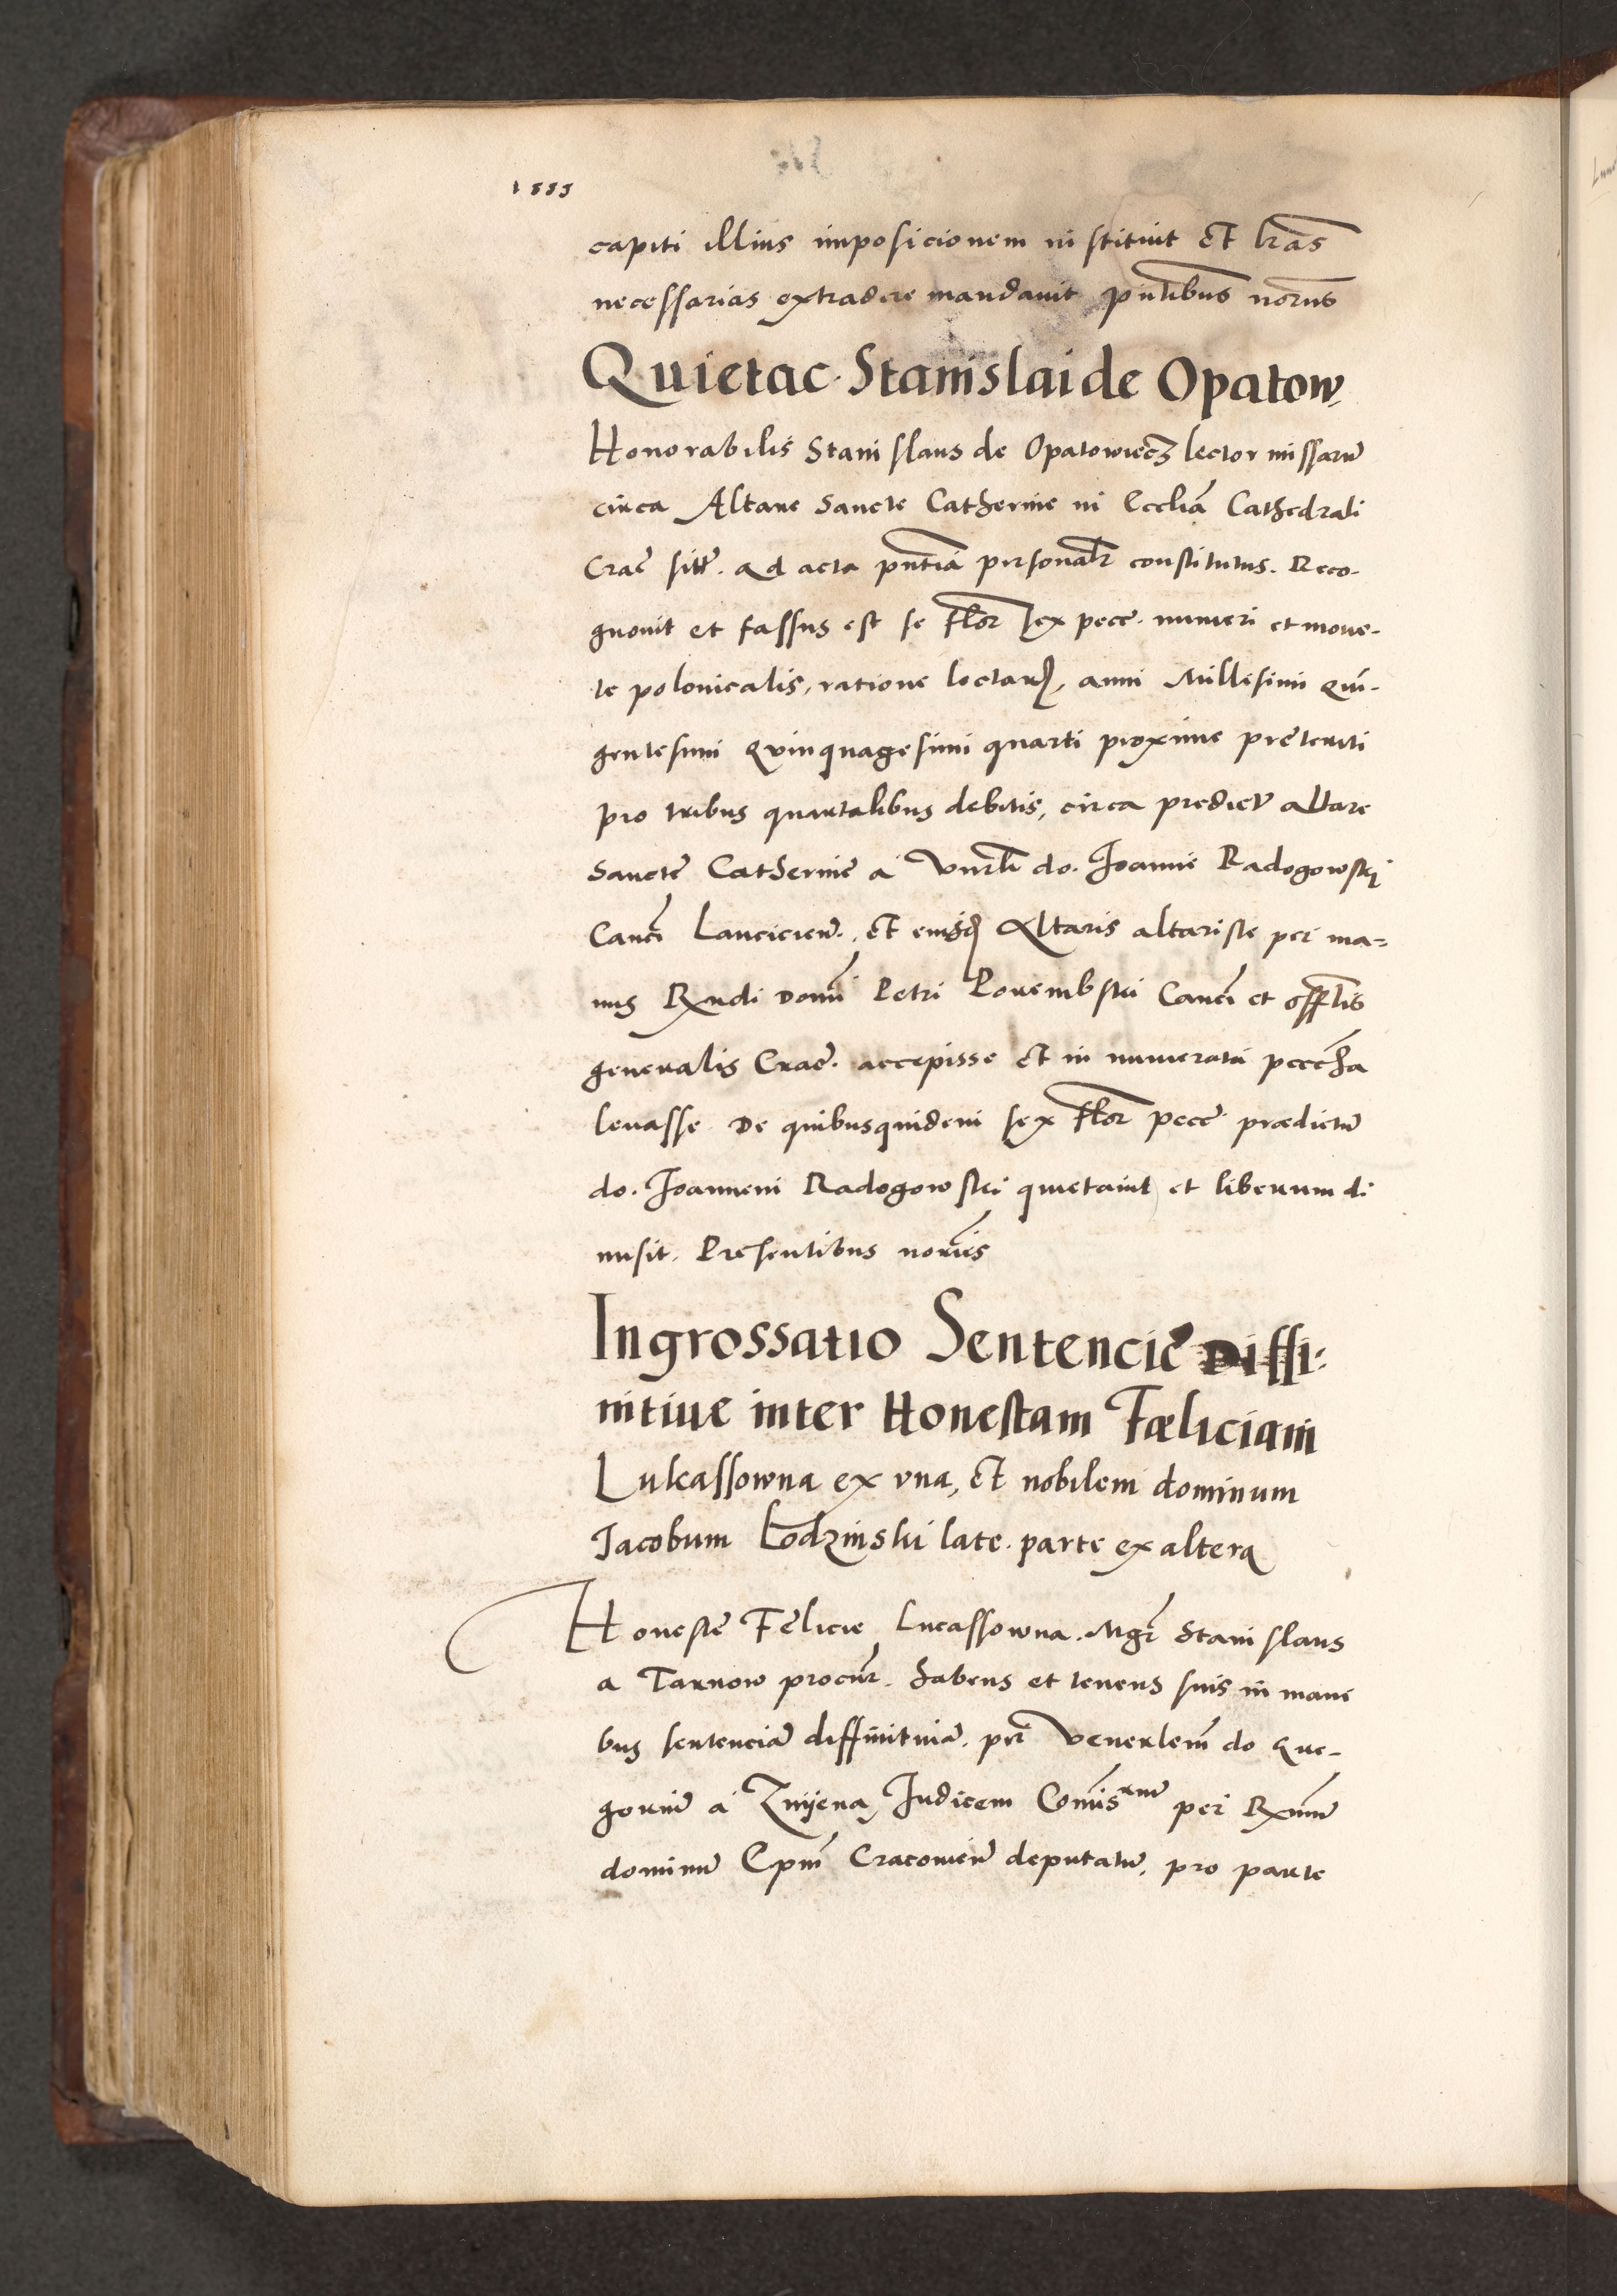 1555
capiti illius imposicionem instituit et lras
necessarias extradere mandavit pntibus norus
Quietac. Stanislai de Opatow.
Honorabilis Stanislaus de Opatowiecz lector missarum
circa Altare Sancte Catherine in Ecclia Cathedrali
Crac sitt. ad acta pntia personalr constitutus. Reco-
gnovit et fassus est se flor sex pecc. numeri et mone-
te polonicalis, ratione lectar, anni Millesimi quin-
gentesimi quinquagesimi quarti proxime preteriti
pro tribus quartalibus debitis, circa predict altare
Sancte Catherine a Vnrli do. Joanne Radogowski
Canci Lancicien. et eiusd Altaris altariste per ma-
nus Rndi Domi Petri Porembski Canci et offlis
generalis Crac. accepisse et in numerata peccha
levasse De quibusquidem sex flor pecc praedictum
do. Joannem Radogowski quietavit et liberum di
misit. Presentibus noriis
Ingrossatio Sentencie Diffi-
nitiue inter Honestam Fæliciam
Lukassowna ex vna, et nobilem dominum
Jacobum Lodzinski late. parte ex altera
Honeste Felicie Lucassowna. Mgr Stanislaus
a Tarnow procur. habens et tenens suis in mani
bus sentenciam diffinitivam. per Venerlem do Gre-
gorium a Znijena Judicem Comisrium per Rxmum
dominum Epm Cracovien deputatum, pro parte